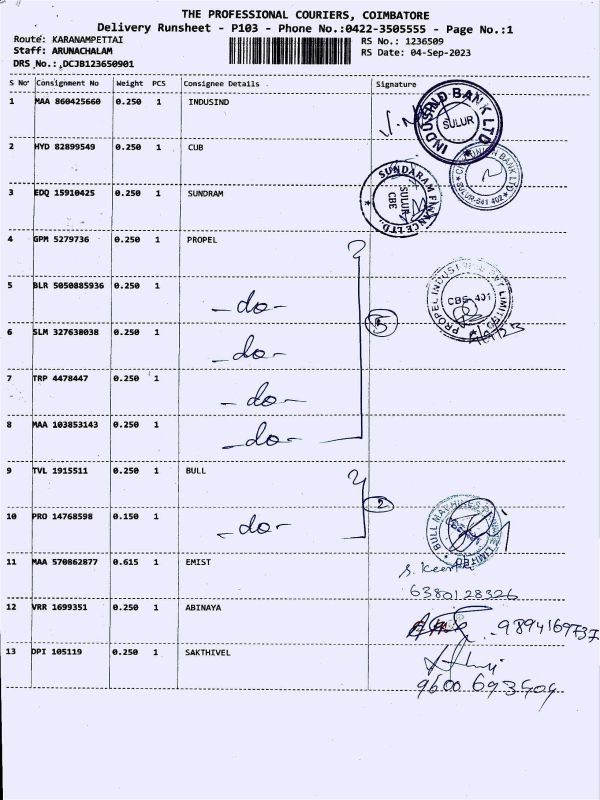 THE PROFESSIONAL COURIERS, COIMBATORE
Delivery Runsheet - P103 - Phone No.:0422-3505555 - Page No.:1
Route: KARANAMPETTAI RS No.: 1236509
Staff: ARUNACHALAM RS Date: 04-Sep-2023
DRS No.: DCJB123650901
S No Consignment No Weight PCS Consignee Details Signature
1 MAA 860425660 0.250 1 INDUSIND
INDUSIND BANK LTD
SULUR
2 HYD 82899549 0.250 1 CUB
UNION BANK LTD
SULUR-641 402
3 EDQ 15910425 0.250 1 SUNDRAM
SUNDARAM FINANCE LTD.,
SULUR
CBE
4 GPM 5279736 0.250 1 PROPEL
5 BLR 5050885936 0.250 1 -do-
5
PROPEL INDUSTRIES LIMITED
CBE 401
6 SLM 327638038 0.250 1 -do-
7 TRP 4478447 0.250 1 -do-
8 MAA 103853143 0.250 1 -do-
9 TVL 1915511 0.250 1 BULL
2
10 PRO 14768598 0.150 1 -do-
BULL MACHINES PRIVATE LIMITED
11 MAA 570862877 0.615 1 EMIST
6380128326
12 VRR 1699351 0.250 1 ABINAYA
9894169737
13 DPI 105119 0.250 1 SAKTHIVEL
9600 693404